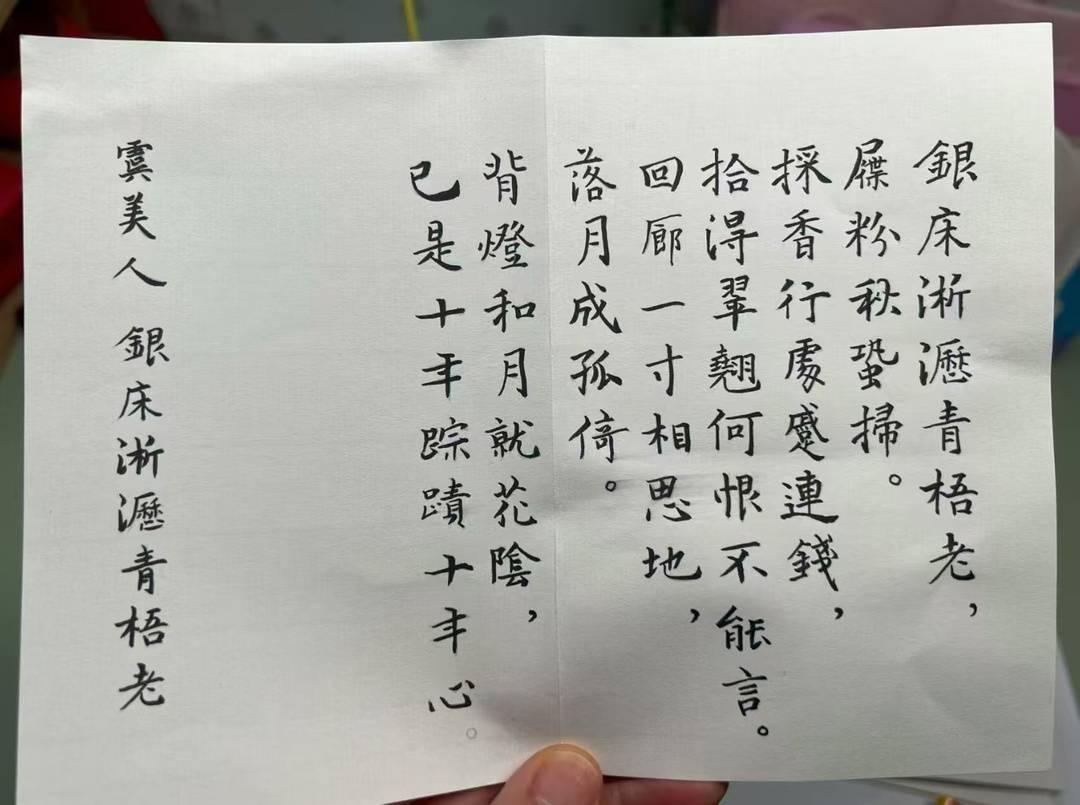 銀床淅瀝青梧老，
屧粉秋蛩掃。
採香行處蹙連錢，
拾得翠翹何恨不能言。
回廊一寸相思地，
落月成孤倚。
背燈和月就花陰，
已是十年踪蹟十年心。
虞美人 銀床淅瀝青梧老